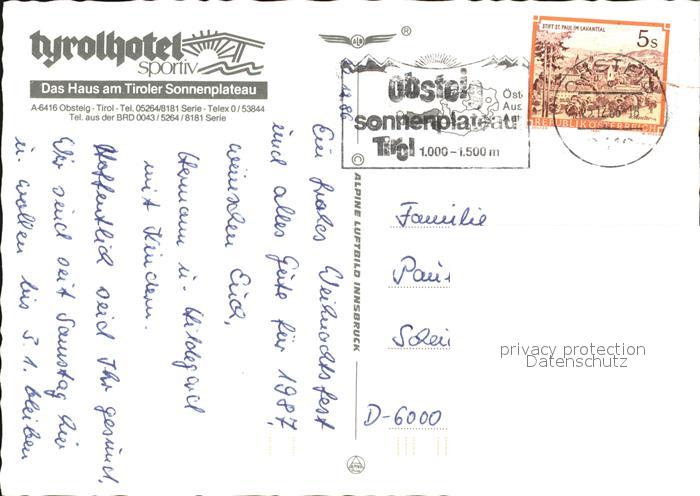 tyrolhotel
sportiv
Das Haus am Tiroler Sonnenplateau
A-6416 Obsteig - Tirol - Tel. 05264/8181 Serie - Telex 0 / 53844
Tel. aus der BRD 0043 / 5264 / 8181 Serie
ALB
®
STIFT ST. PAUL IM LAVANTTAL
5s
REPUBLIK ÖSTERREICH
obsteig
sonnenplateau
Tirol 1.000 – 1.500 m
Öst
Aus
ALPINE LUFTBILD INNSBRUCK
.12.86
Ein frohes Weihnachtsfest
und alles Gute für 1987,
wünschen Euch,
Hermann u. Hildegard
mit Kindern.
Hoffentlich seid Ihr gesund.
Wir sind seit Samstag hier
u. wollen bis 3. 1. bleiben
Familie
D-6000
privacy protection
Datenschutz